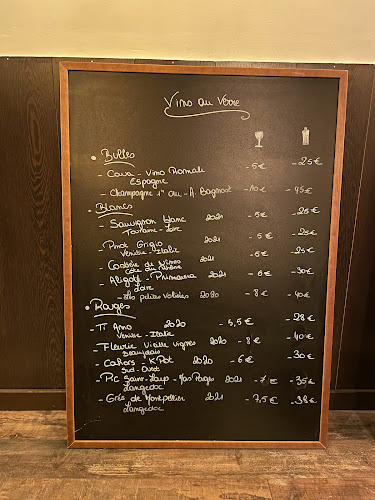 Vino au verre
• Bulles
- Cava - Vino Romali - 5€ - 25€
Espagne
- Champagne 1er cru - A. Bagnost - 10€ - 45€
• Blancs
- Sauvignon blanc 2021 - 5€ - 25€
Touraine - Loire
- Pinot Grigio 2021 - 5€ - 25€
Vénétie - Italie
- Costière de Nîmes 2021 - 5€ - 25€
Côte du Rhône
- Aligoté - Primaura 2021 - 6€ - 30€
Loire
- Les petites 2020 - 8€ - 40€
• Rouges
- Ti Amo 2020 - 5,5€ - 28€
Vénétie - Italie
- Fleurie Vieille vignes 2020 - 8€ - 40€
Beaujolais
- Cahors - K-Pot 2020 - 6€ - 30€
Sud-Ouest
- Pic Saint-Loup - Mas Peyre 2021 - 7€ - 35€
Langedoc
- Grés de Montpellier 2021 - 7,5€ - 38€
Langedoc